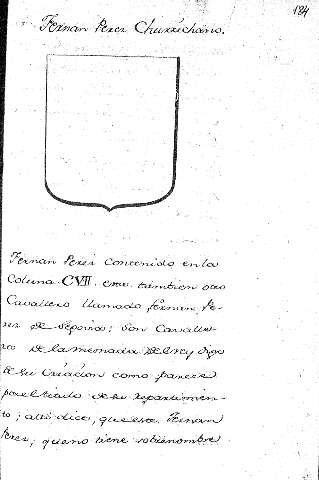 184
Fernan Perez Churrichano.
Fernan Perez Contenido en la
Coluna CVII. eran tambien otro
Cavallero llamado fernan Pe-
rez de Espinosa: Son Cavalle-
ros de la mesnada del rey digo
de su Criacion como parece
por el titulo de su repartimien-
to; alli dice, que este Fernan
Perez, que no tiene sobrenombre